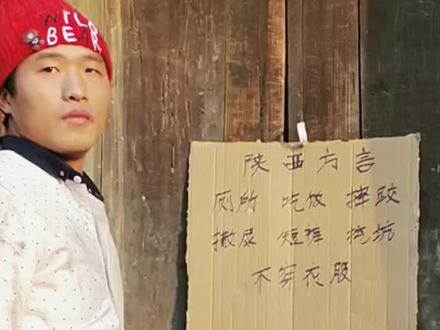 WILD
BEAR
陕西方言
厕所 吃饭 摔跤
撒尿 短裤 水坑
不穿衣服